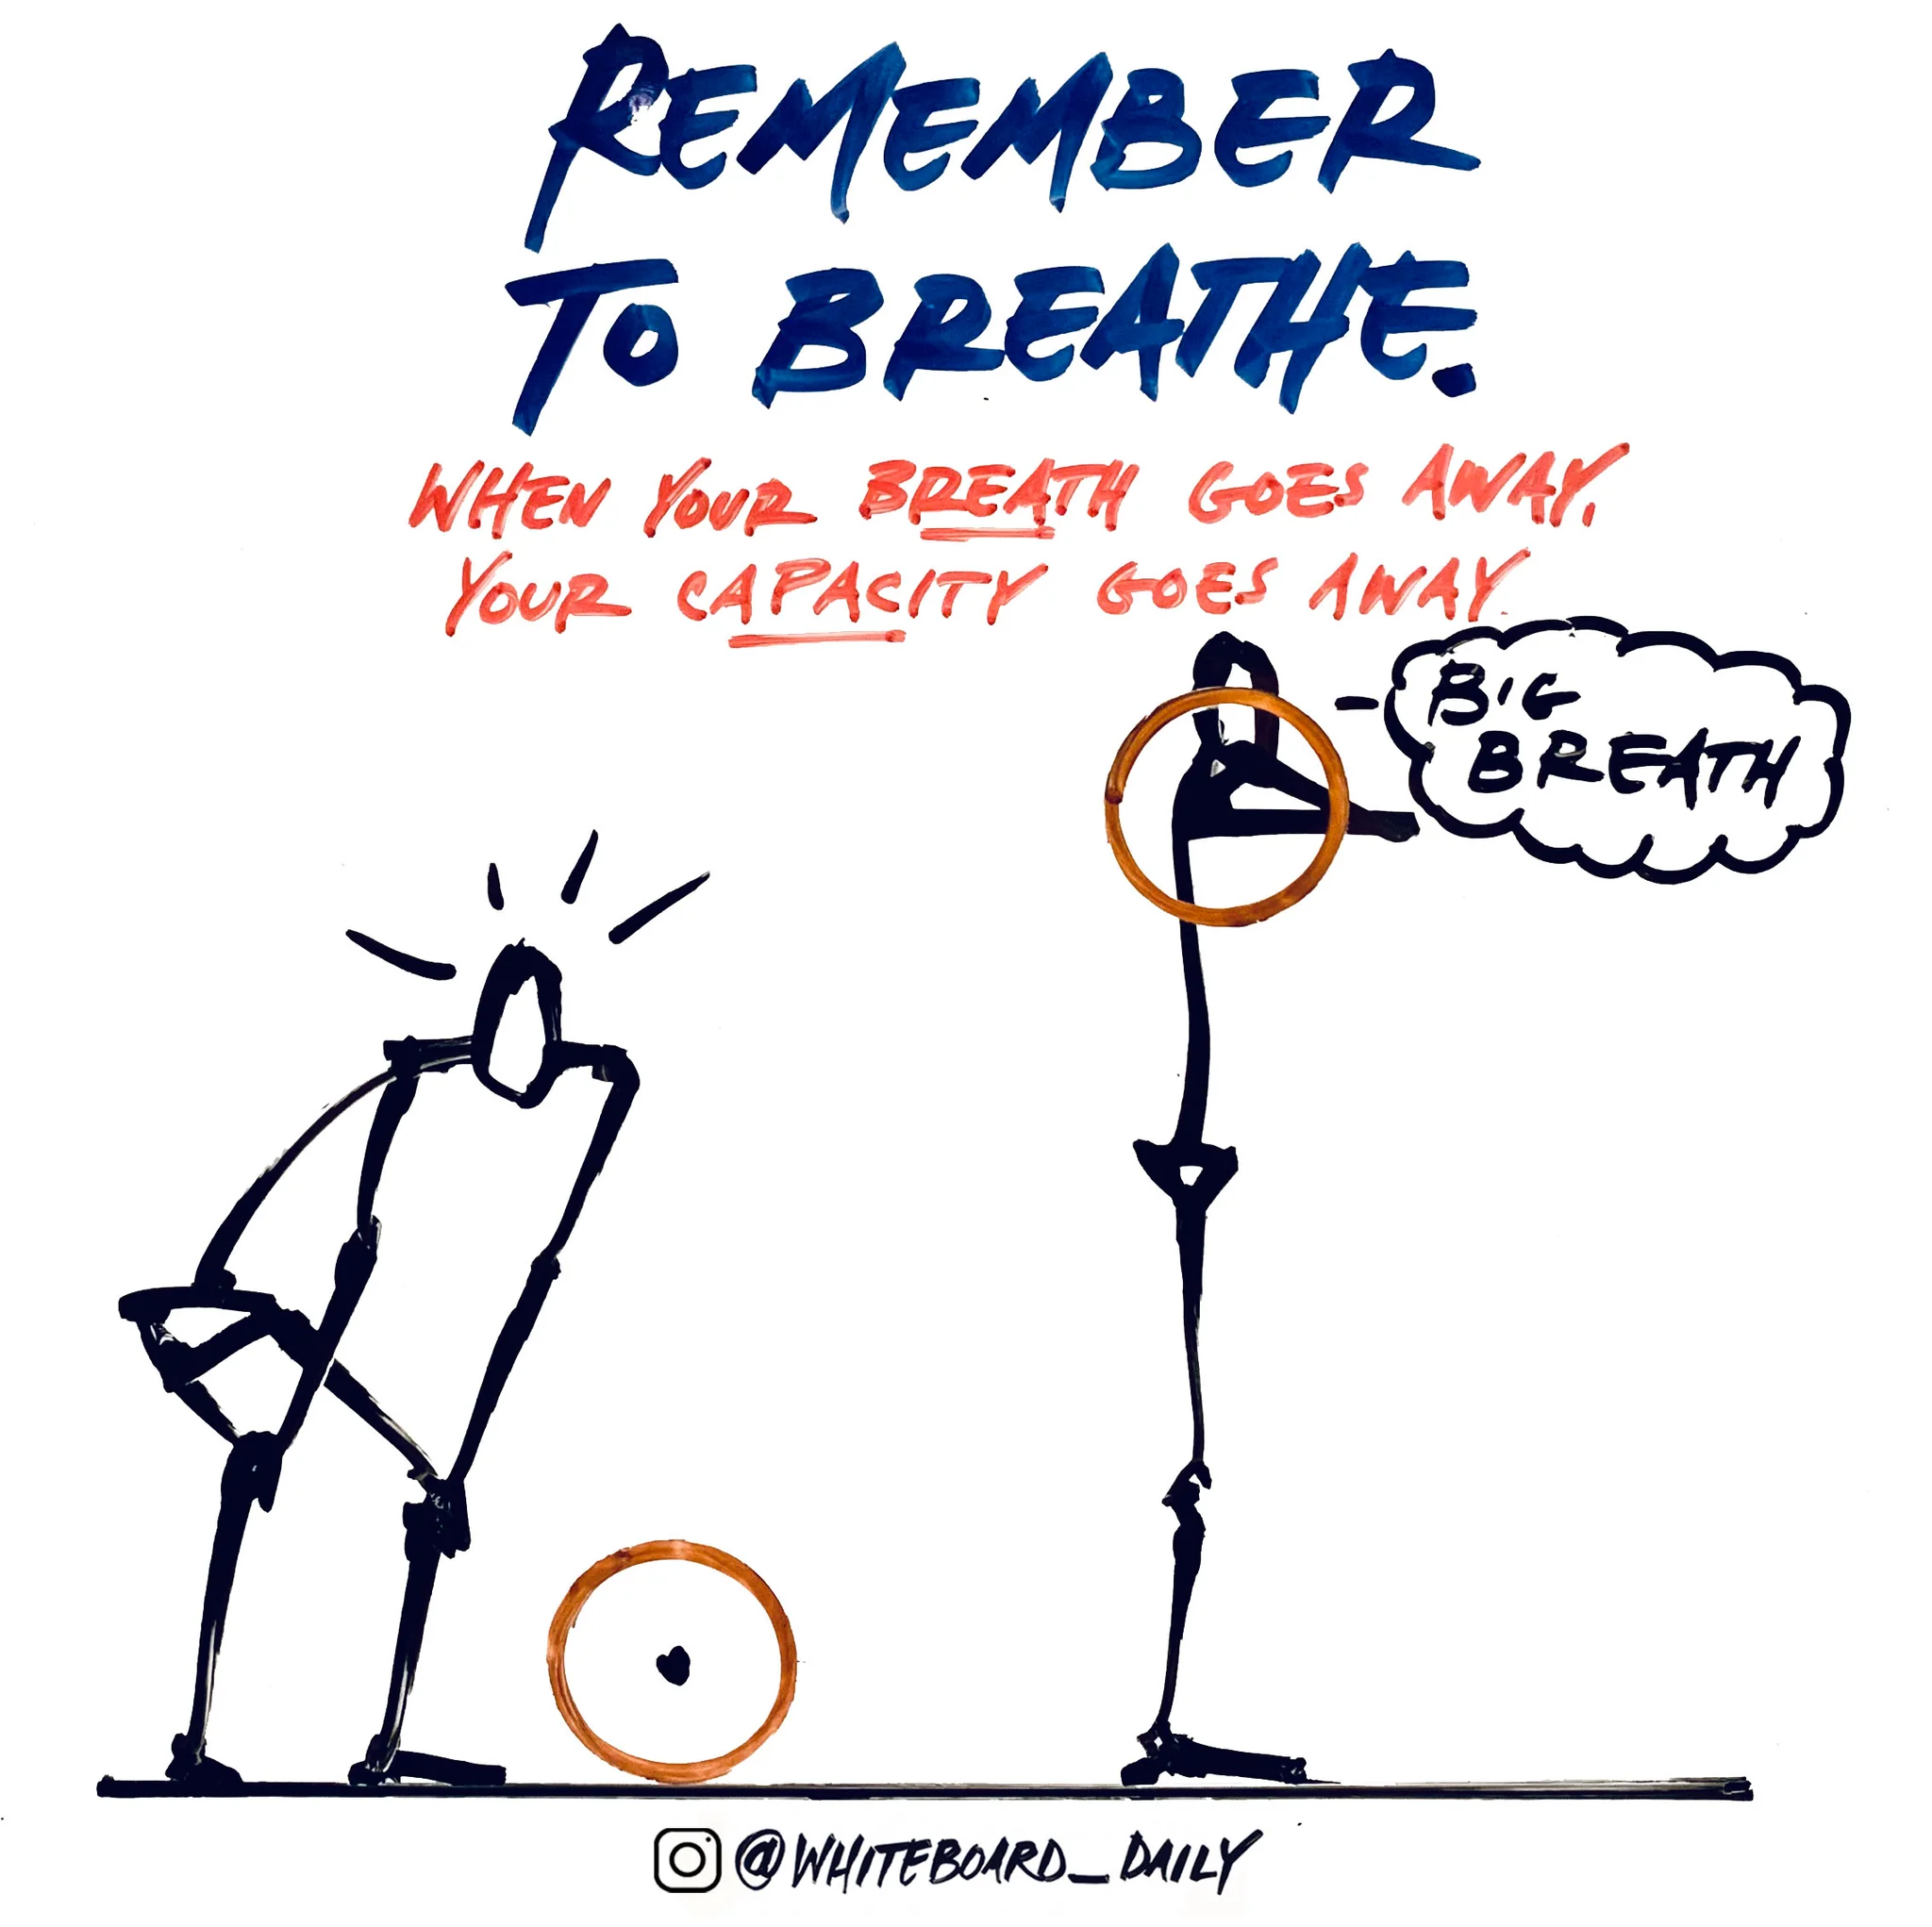 REMEMBER
TO BREATHE.
WHEN YOUR BREATH GOES AWAY,
YOUR CAPACITY GOES AWAY.
BIG
BREATH
@WHITEBOARD_DAILY